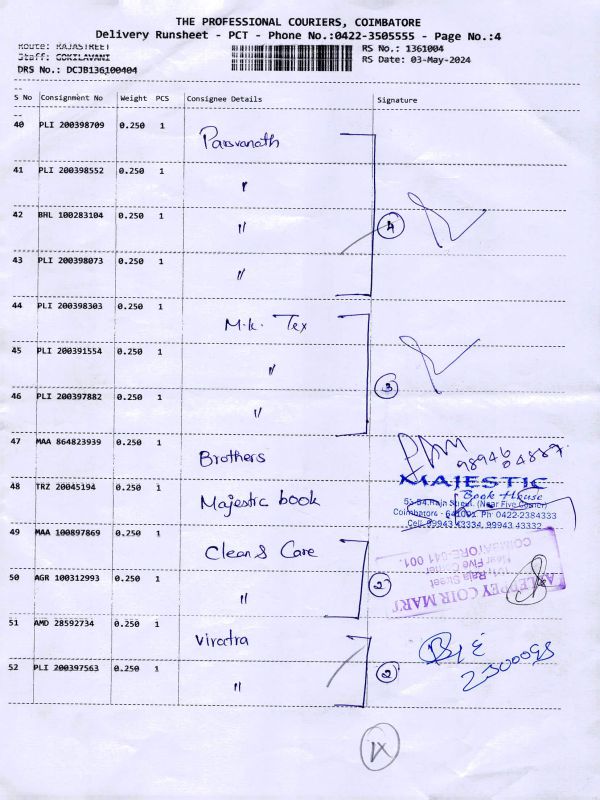 THE PROFESSIONAL COURIERS, COIMBATORE
Delivery Runsheet - PCT - Phone No.:0422-3505555 - Page No.:4
Route: RAJASTREET
RS No.: 1361004
Staff: GOKILAVANI
RS Date: 03-May-2024
DRS No.: DCJB136100404
S No Consignment No Weight PCS Consignee Details Signature
40 PLI 200398709 0.250 1 Parsvanath
41 PLI 200398552 0.250 1 "
42 BHL 100283104 0.250 1 " 4
43 PLI 200398073 0.250 1 "
44 PLI 200398303 0.250 1 M.K. Tex
45 PLI 200391554 0.250 1 " 3
46 PLI 200397882 0.250 1 "
47 MAA 864823939 0.250 1 Brothers
48 TRZ 20045194 0.250 1 Majestic book
MAJESTIC
Book House
53-54, Raja Street, (Near Five Corner)
Coimbatore - 641001. Ph: 0422-2384333
Cell: 99943 43334, 99943 43332
49 MAA 100897869 0.250 1 Clean & Care
50 AGR 100312993 0.250 1 " 2
ALLEPPEY COIR MART
Raja Street
Near Five Corner
COIMBATORE-641 001.
51 AMD 28592734 0.250 1 Viratra
52 PLI 200397563 0.250 1 " 2